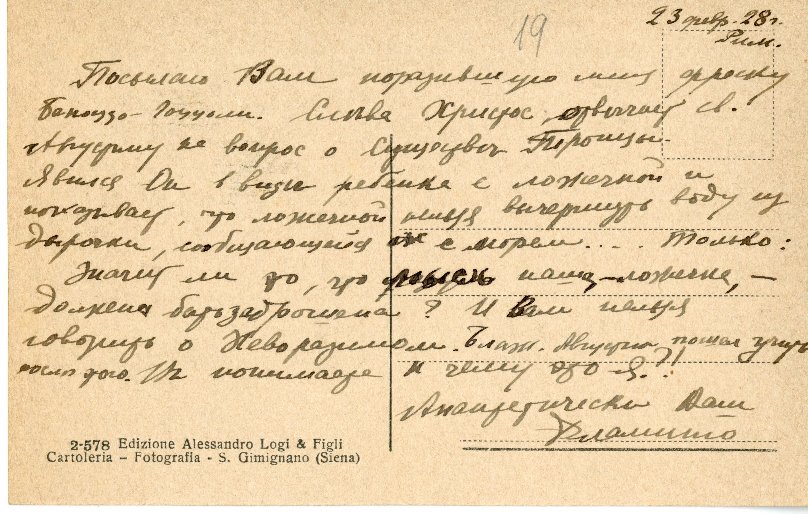 19
23 февр. 28 г.
Рим.
Посылаю Вам поразившую меня фреску
Беноццо-Гоццоли. Слева Христос, отвечает св.
Августину на вопрос о Существе Троицы.
Явился Он в виде ребенка с ложечкой и
показывает, что ложечкой нельзя вычерпнуть воду из
дырочки, сообщающейся с морем.... Только:
Значит ли это, что наша ложечка, –
должна быть заброшена? И Вам нельзя
говорить о Невыразимом. Блаж. Августин пошел учить
после того. Вы понимаете к чему это я.
Вам
2-578 Edizione Alessandro Logi & Figli
Cartoleria – Fotografia - S. Gimignano (Siena)